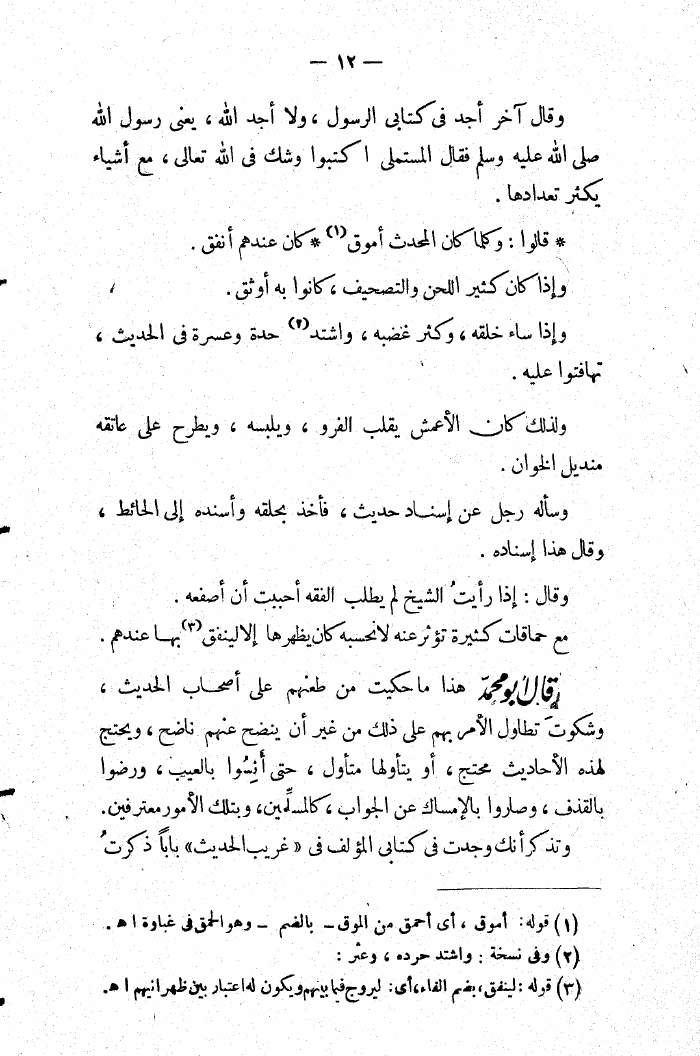 — ١٢ —
وقال آخر أجد فى كتابى الرسول ، ولا أجد الله ، يعنى رسول الله
صلى الله عليه وسلم فقال المستملى اكتبوا وشك فى الله تعالى ، مع أشياء
يكثر تعدادها .
* قالوا : وكلما كان المحدث أموق (١) * كان عندهم أنفق .
وإذا كان كثير اللحن والتصحيف ، كانوا به أوثق .
وإذا ساء خلقه ، وكثر غضبه ، واشتد (٢) حدة وعسرة فى الحديث ،
تهافتوا عليه .
ولذلك كان الأعمش يقلب الفرو ، ويلبسه ، ويطرح على عاتقه
منديل الخوان .
وسأله رجل عن إسناد حديث ، فأخذ بحلقه وأسنده إلى الحائط ،
وقال هذا إسناده .
وقال : إذا رأيتُ الشيخ لم يطلب الفقه أحببت أن أصفعه .
مع حماقات كثيرة تؤثر عنه لا نحسبه كان يظهرها إلا لينفق (٣) بها عندهم .
قال أبو محمد هذا ما حكيت من طعنهم على أصحاب الحديث ،
وشكوتَ تطاول الأمر بهم على ذلك من غير أن ينضح عنهم ناضح ، ويحتج
لهذه الأحاديث محتج ، أو يتأولها متأول ، حتى أَنِسُوا بالعيب ، ورضوا
بالقذف ، وصاروا بالإمساك عن الجواب ، كالمسلِّمين ، وبتلك الأمور معترفين .
وتذكر أنك وجدت فى كتابى المؤلف فى « غريب الحديث » باباً ذكرتُ
(١) قوله : أموق ، أى أحمق من الموق — بالضم — وهو الحمق فى غباوة اهـ .
(٢) وفى نسخة : واشتد حرده ، وعسر :
(٣) قوله : لينفق ، بضم الفاء ، أى : ليروج فيما بينهم ويكون له اعتبار بين ظهرانيهم اهـ .